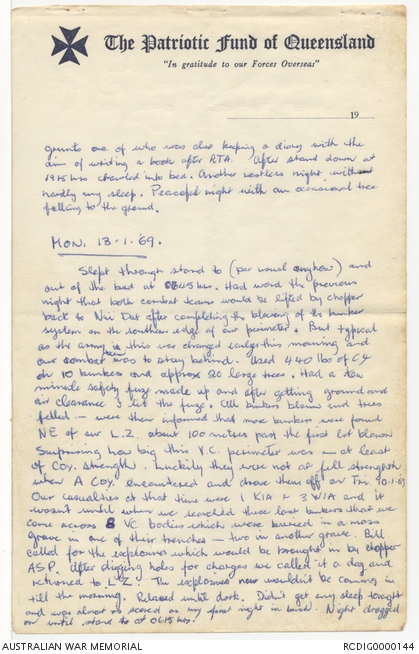 The Patriotic Fund of Queensland
"In gratitude to our Forces Overseas"
19
grunts one of who was also keeping a diary with the
aim of writing a book after RTA. After stand down at
1915 hrs crawled into bed. Another restless night without
hardly any sleep. Peaceful night with an occasional tree
falling to the ground.
MON. 13.1.69.
Slept through stand to (per usual anyhow) and
out of the bed at 0645 hrs. Had word the previous
night that both combat teams would be lifted by chopper
back to Nui Dat after completing the blowing of the bunker
system on the southern edge of our perimeter. But typical
as the army is this was changed earlier this morning and
our combat team was to stay behind. Used 440 lbs of C4
on 10 bunkers and approx 20 large trees. Had a ten
minute safety fuze made up and after getting ground and
air clearance I lit the fuze. All bunkers blown and trees
felled – were then informed that more bunkers were found
NE of our L.Z. about 100 meters past the first lot blown
Surprising how big this V.C. perimeter was – at least
of Coy. strength. Luckily they were not at full strength
when A Coy. encountered and drove them off on Fri 10.1.69
Our casualties at that time were 1 KIA & 3 WIA and it
wasn't until when we searched these last bunkers that we
came across 8 VC bodies which were buried in a mass
grave in one of their trenches – two in another grave. Bill
called for the explosives which would be brought in by chopper
ASP. After digging holes for charges we called it a day and
returned to L.Z. The explosives now wouldn't be coming in
till the morning. Relaxed until dark. Didn't get any sleep tonight
and was almost as scared as my first night in bush. Night dragged
on until stand to at 0615 hrs.
AUSTRALIAN WAR MEMORIAL
RCDIG0000144